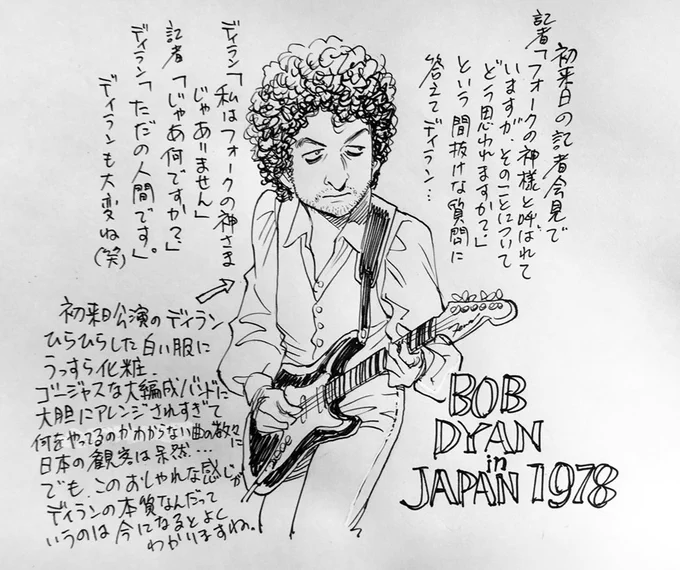 初来日の記者会見で
記者「フォークの神様と呼ばれて
いますが、そのことについて
どう思われますか?」
という間抜けな質問に
答えてディラン…
ディラン「私はフォークの神さま
じゃありません」
記者「じゃあ何ですか?」
ディラン「ただの人間です。」
ディランも大変ね(笑)
初来日公演のディラン
ひらひらした白い服に
うっすら化粧、
ゴージャスな大編成バンドに
大胆にアレンジされすぎて
何をやってるのかわからない曲の数々に
日本の観客は呆然…
でも、このおしゃれな感じが
ディランの本質なんだって
いうのは今になるとよく
わかりますね。
BOB
DYAN
in
JAPAN 1978